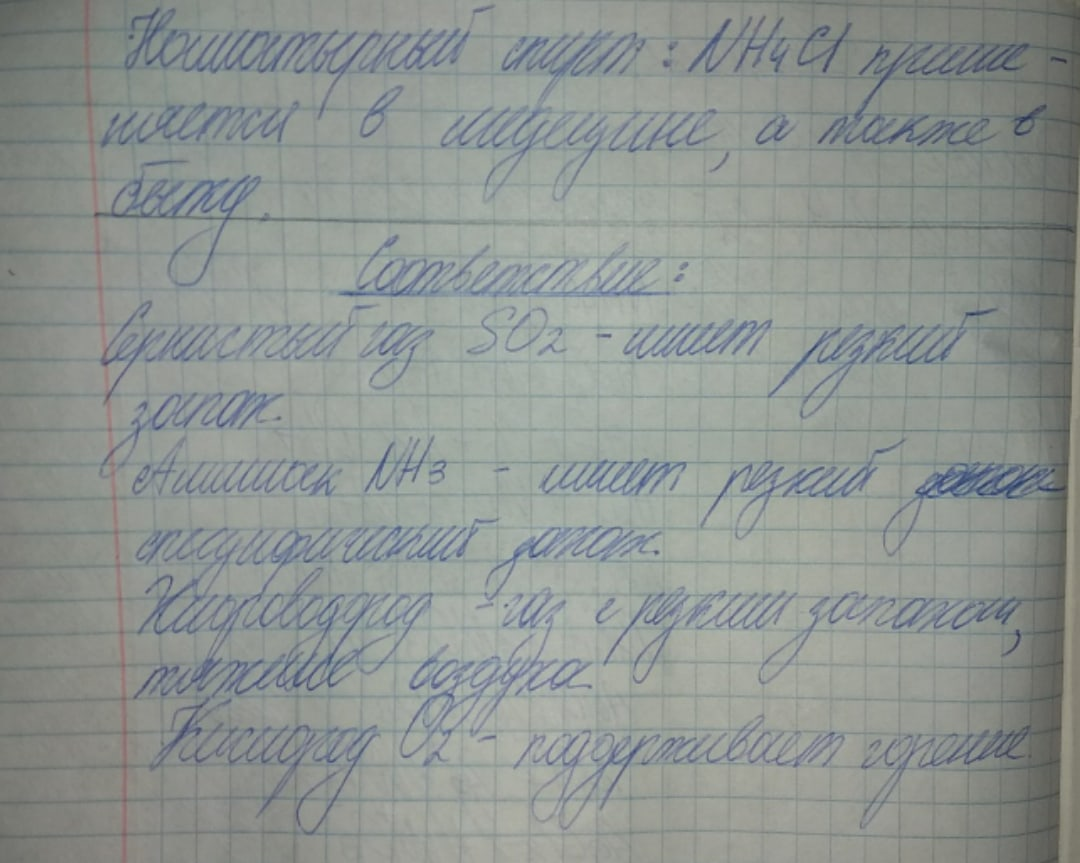 Нашатырный спирт: NH4Cl приме-
няется в медецине, а также в
быту.
Соответствие:
Сернистый газ SO2 - имеет резкий
запах.
Аммиак NH3 - имеет резкий
специфический запах.
Хлороводород - газ с резким запахом,
тяжелее воздуха
Кислород O2 - поддерживает горение.